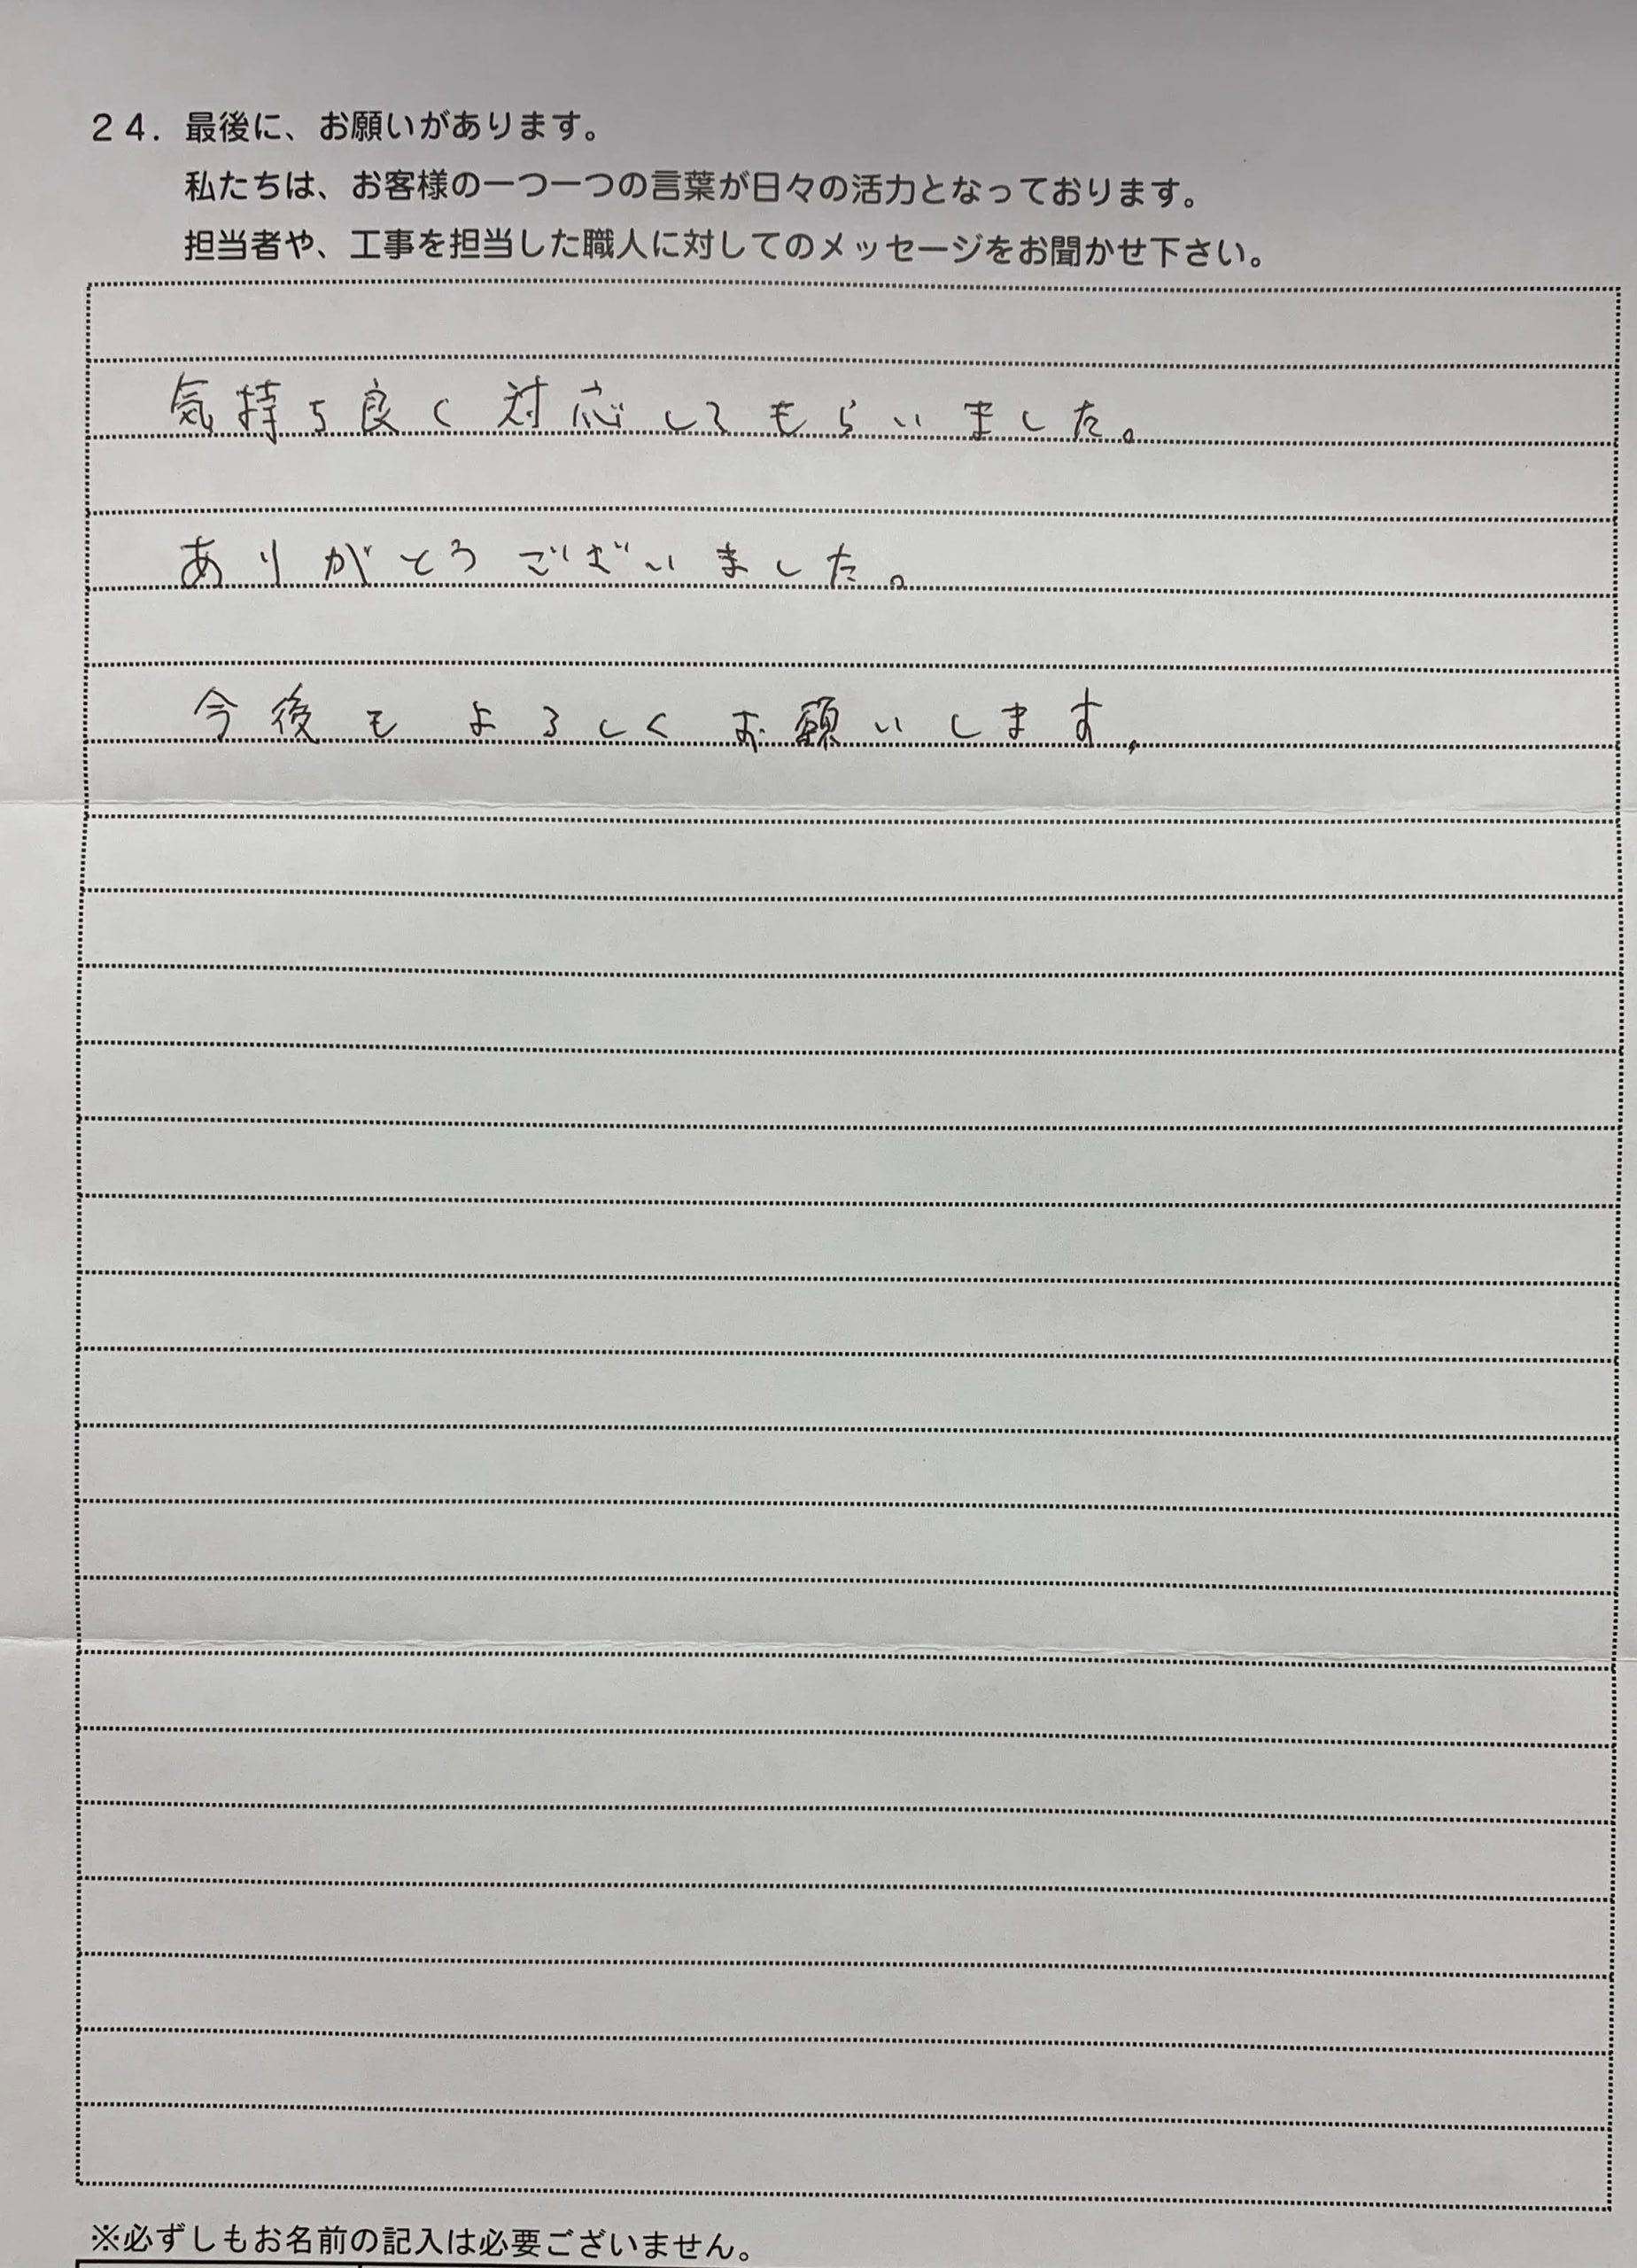 ２４．最後に、お願いがあります。
私たちは、お客様の一つ一つの言葉が日々の活力となっております。
担当者や、工事を担当した職人に対してのメッセージをお聞かせ下さい。
気持ち良く対応してもらいました。
ありがとうございました。
今後もよろしくお願いします。
※必ずしもお名前の記入は必要ございません。